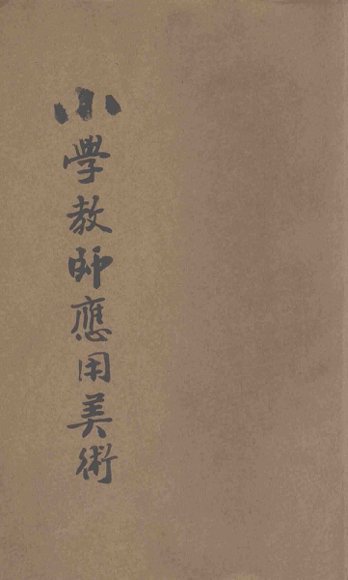 小學教師應用美術